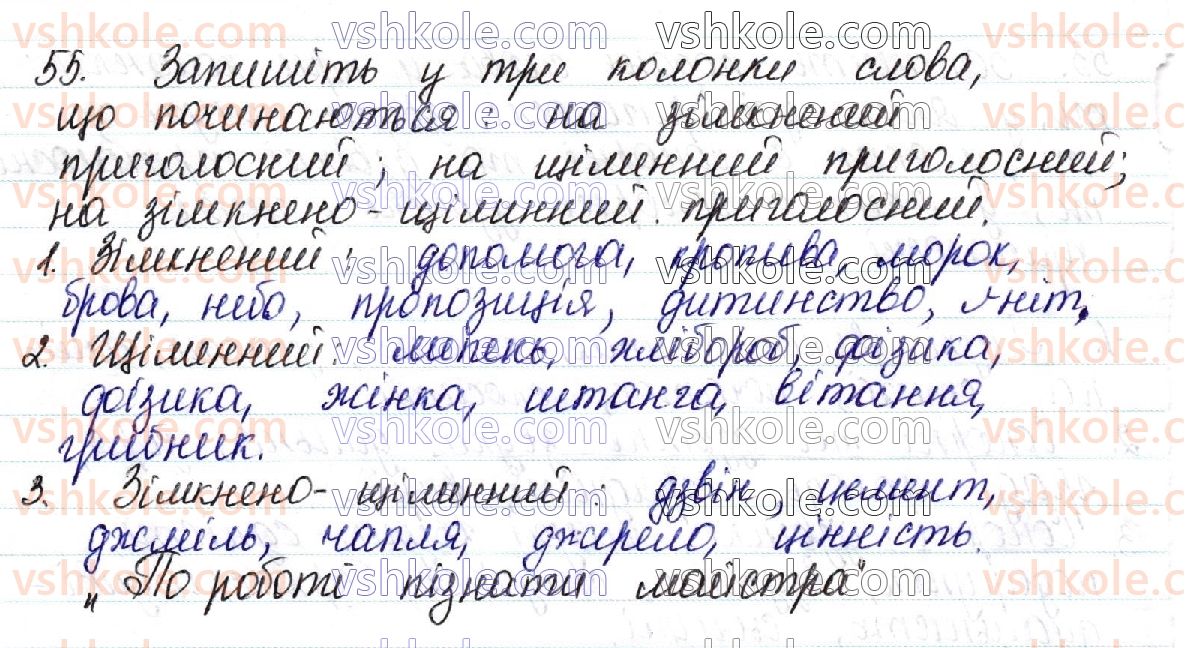 55. Запишіть у три колонки слова,
що починаються на зімкнений
приголосний; на щілинний приголосний;
на зімкнено-щілинний приголосний.
1. Зімкнений: допомога, кропива, морок,
брова, небо, пропозиція, дитинство, ґніт.
2. Щілинний: липень, хлібороб, фізика,
фізика, жінка, штанга, вітання,
грибник.
3. Зімкнено-щілинний: дзвін, цемент,
джміль, чапля, джерело, цінність.
"По роботі пізнати майстра"
vshkole.com